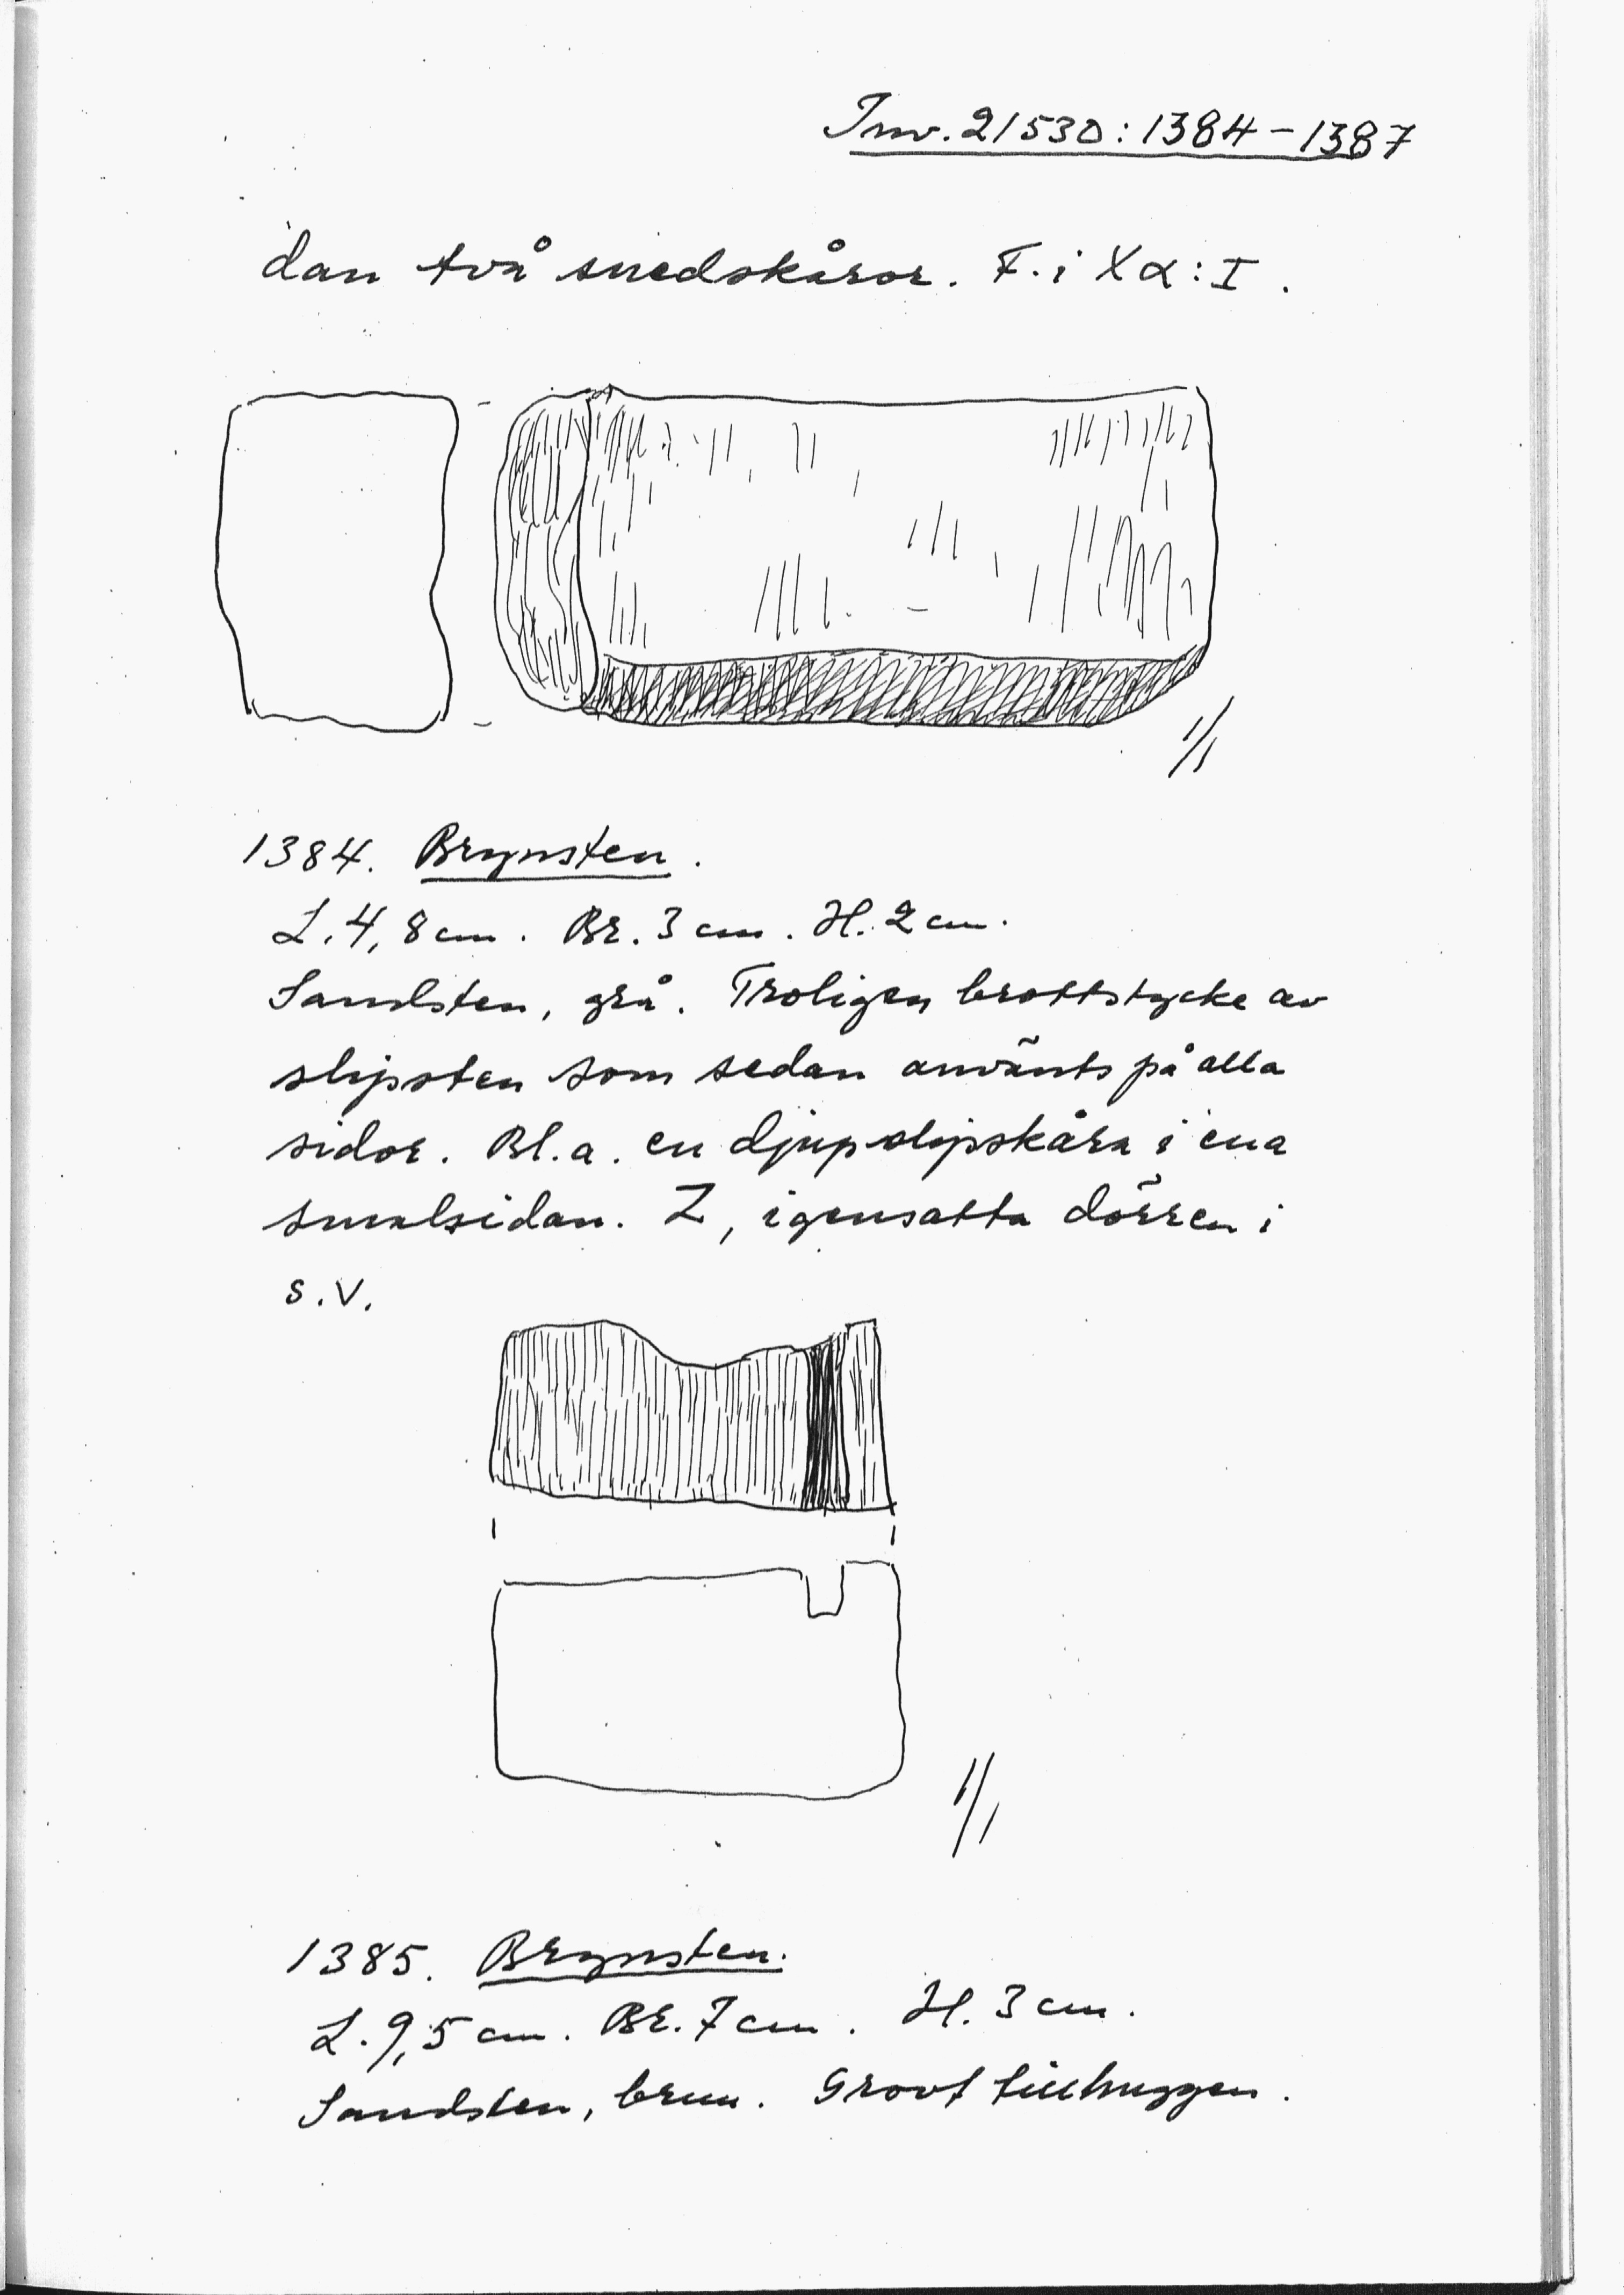 Inv. 21530:1384-1387
dan två snedskåror. F. i Xα:I.
1/1
1384. Brynsten.
L. 4,8 cm. Br. 3 cm. H. 2 cm.
Sandsten, grå. Troligen brottstycke av
slipsten som sedan använts på alla
sidor. Bl.a. en djup slipskåra i ena
smalsidan. Z, igensatta dörren i
s.v.
1/1
1385. Brynsten.
L. 9,5 cm. Br. 7 cm. H. 3 cm.
Sandsten, brun. Grovt tillhuggen.